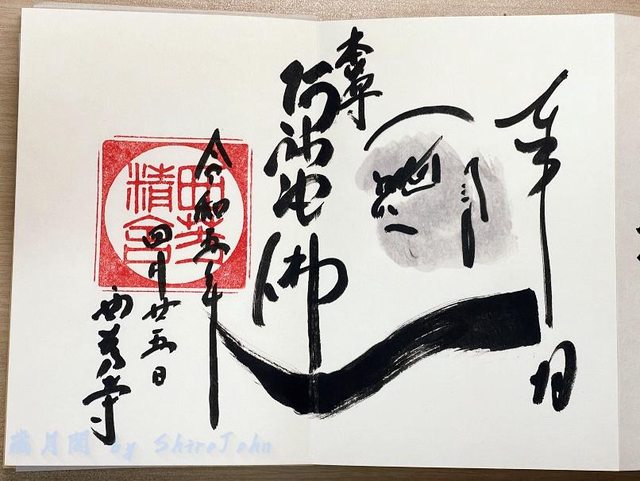 奉拝
本尊
阿弥陀佛
令和五年
四月廿五日
西芳寺
西芳
精舎
by